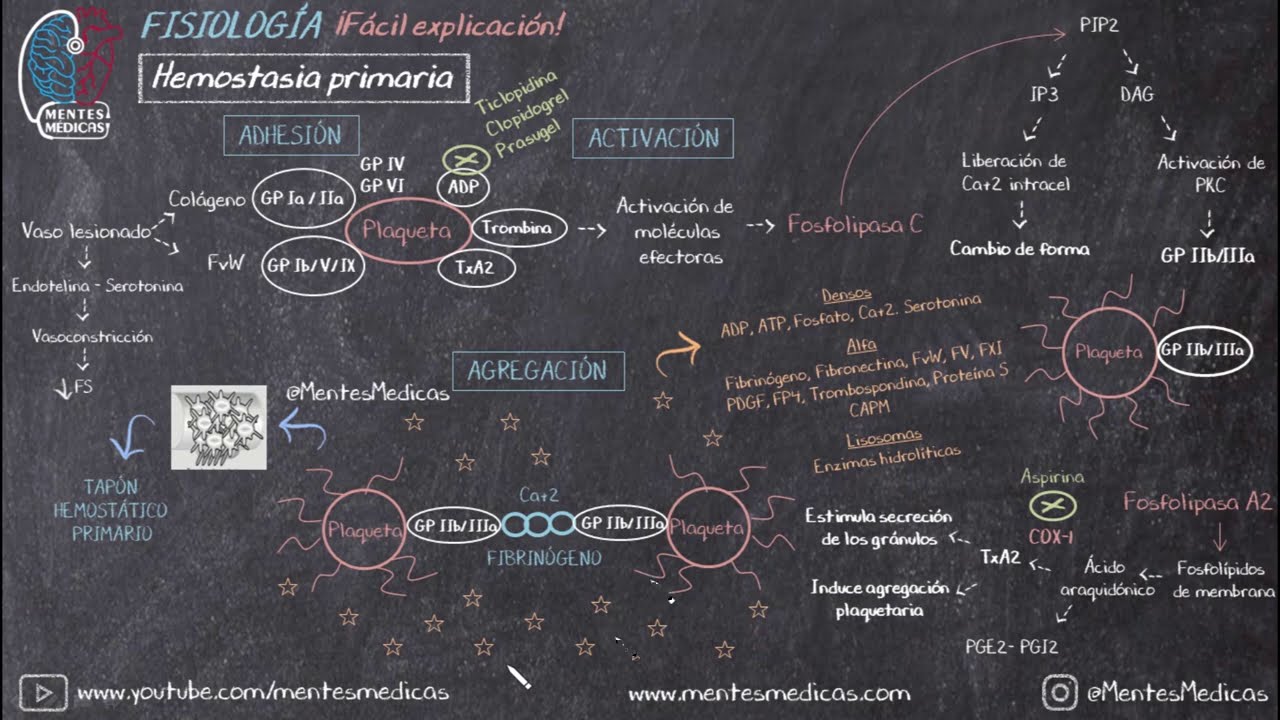 FISIOLOGÍA ¡Fácil explicación!
Hemostasia primaria
MENTES
MÉDICAS
ADHESIÓN
Ticlopidina
Clopidogrel
Prasugel
ACTIVACIÓN
PIP2
IP3
DAG
Liberación de
Ca+2 intracel
Cambio de forma
Activación de
PKC
GP IIb/IIIa
Vaso lesionado
Colágeno
FvW
GP Ia/IIa
GP Ib/V/IX
GP IV
GP VI
Plaqueta
ADP
Trombina
TxA2
Activación de
moléculas
efectoras
Fosfolipasa C
Endotelina - Serotonina
Vasoconstricción
FS
AGREGACIÓN
@MentesMedicas
Densos
ADP, ATP, Fosfato, Ca+2. Serotonina
Alfa
Fibrinógeno, Fibronectina, FvW, FV, FXI
PDGF, FP4, Trombospondina, Proteína S
CAPM
Lisosomas
Enzimas hidrolíticas
Plaqueta
GP IIb/IIIa
TAPÓN
HEMOSTÁTICO
PRIMARIO
Plaqueta
GP IIb/IIIa
Ca+2
FIBRINÓGENO
GP IIb/IIIa
Plaqueta
Aspirina
COX-1
Fosfolipasa A2
Fosfolípidos
de membrana
Ácido
araquidónico
TxA2
Estimula secreción
de los gránulos
Induce agregación
plaquetaria
PGE2- PGI2
www.youtube.com/mentesmedicas
www.mentesmedicas.com
@MentesMedicas